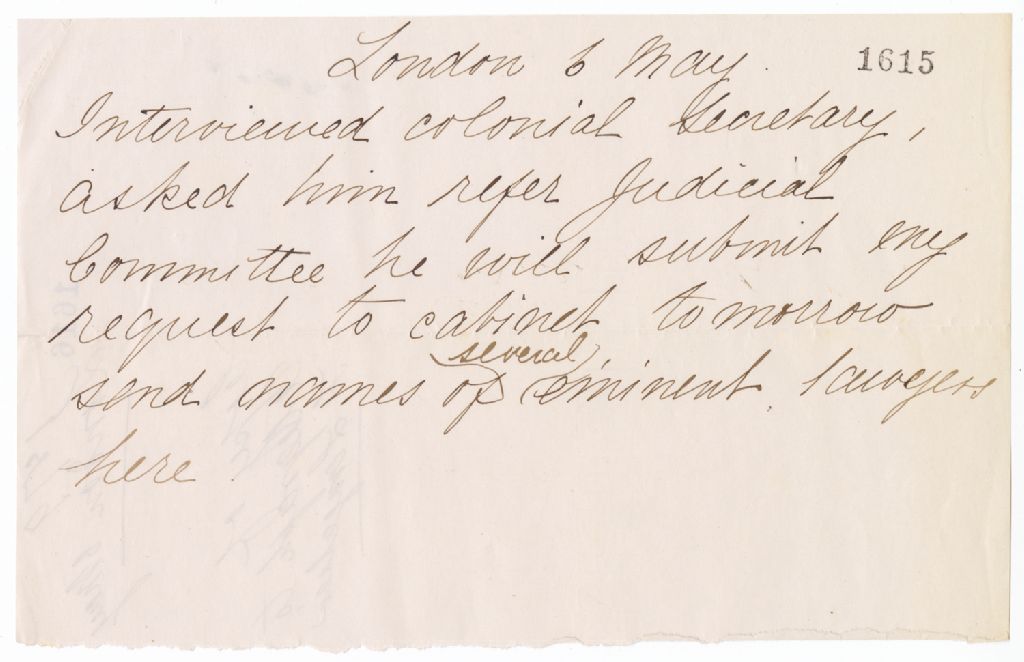 London 6 May.
1615
Interviewed colonial Secretary,
asked him refer Judicial
Committee he will submit my
request to cabinet tomorrow
several
send names of eminent lawyers
here.